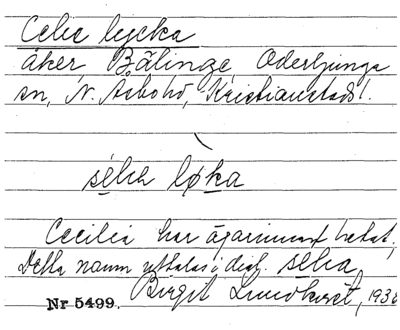 Celia lycka
åker, Bälinge, Oderljunga
sn, N. Åsbo hd, Kristianstads l.
sélia løka
Cecilia har ägarinnan hetat,
Detta namn uttalas i dial. selia
Birgit Lundkvist, 193
Nr 5499.